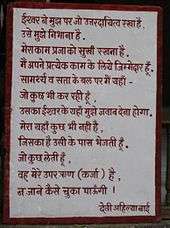 ईश्वर ने मुझ पर जो उत्तरदायित्व रखा है,
उसे मुझे निभाना है.
मेरा काम प्रजा को सुखी रखना है.
मैं अपने प्रत्येक काम के लिये जिम्मेदार हूँ.
सामर्थ्य व सत्ता के बल पर मैं यहाँ -
जो कुछ भी कर रही हूँ,
उसका ईश्वर के यहाँ मुझे जवाब देना होगा.
मेरा यहाँ कुछ भी नहीं है,
जिसका है उसी के पास भेजती हूँ.
जो कुछ लेती हूँ,
वह मेरे उपर ऋण (कर्जा) है,
न जाने कैसे चुका पाऊँगी !
देवी अहिल्याबाई